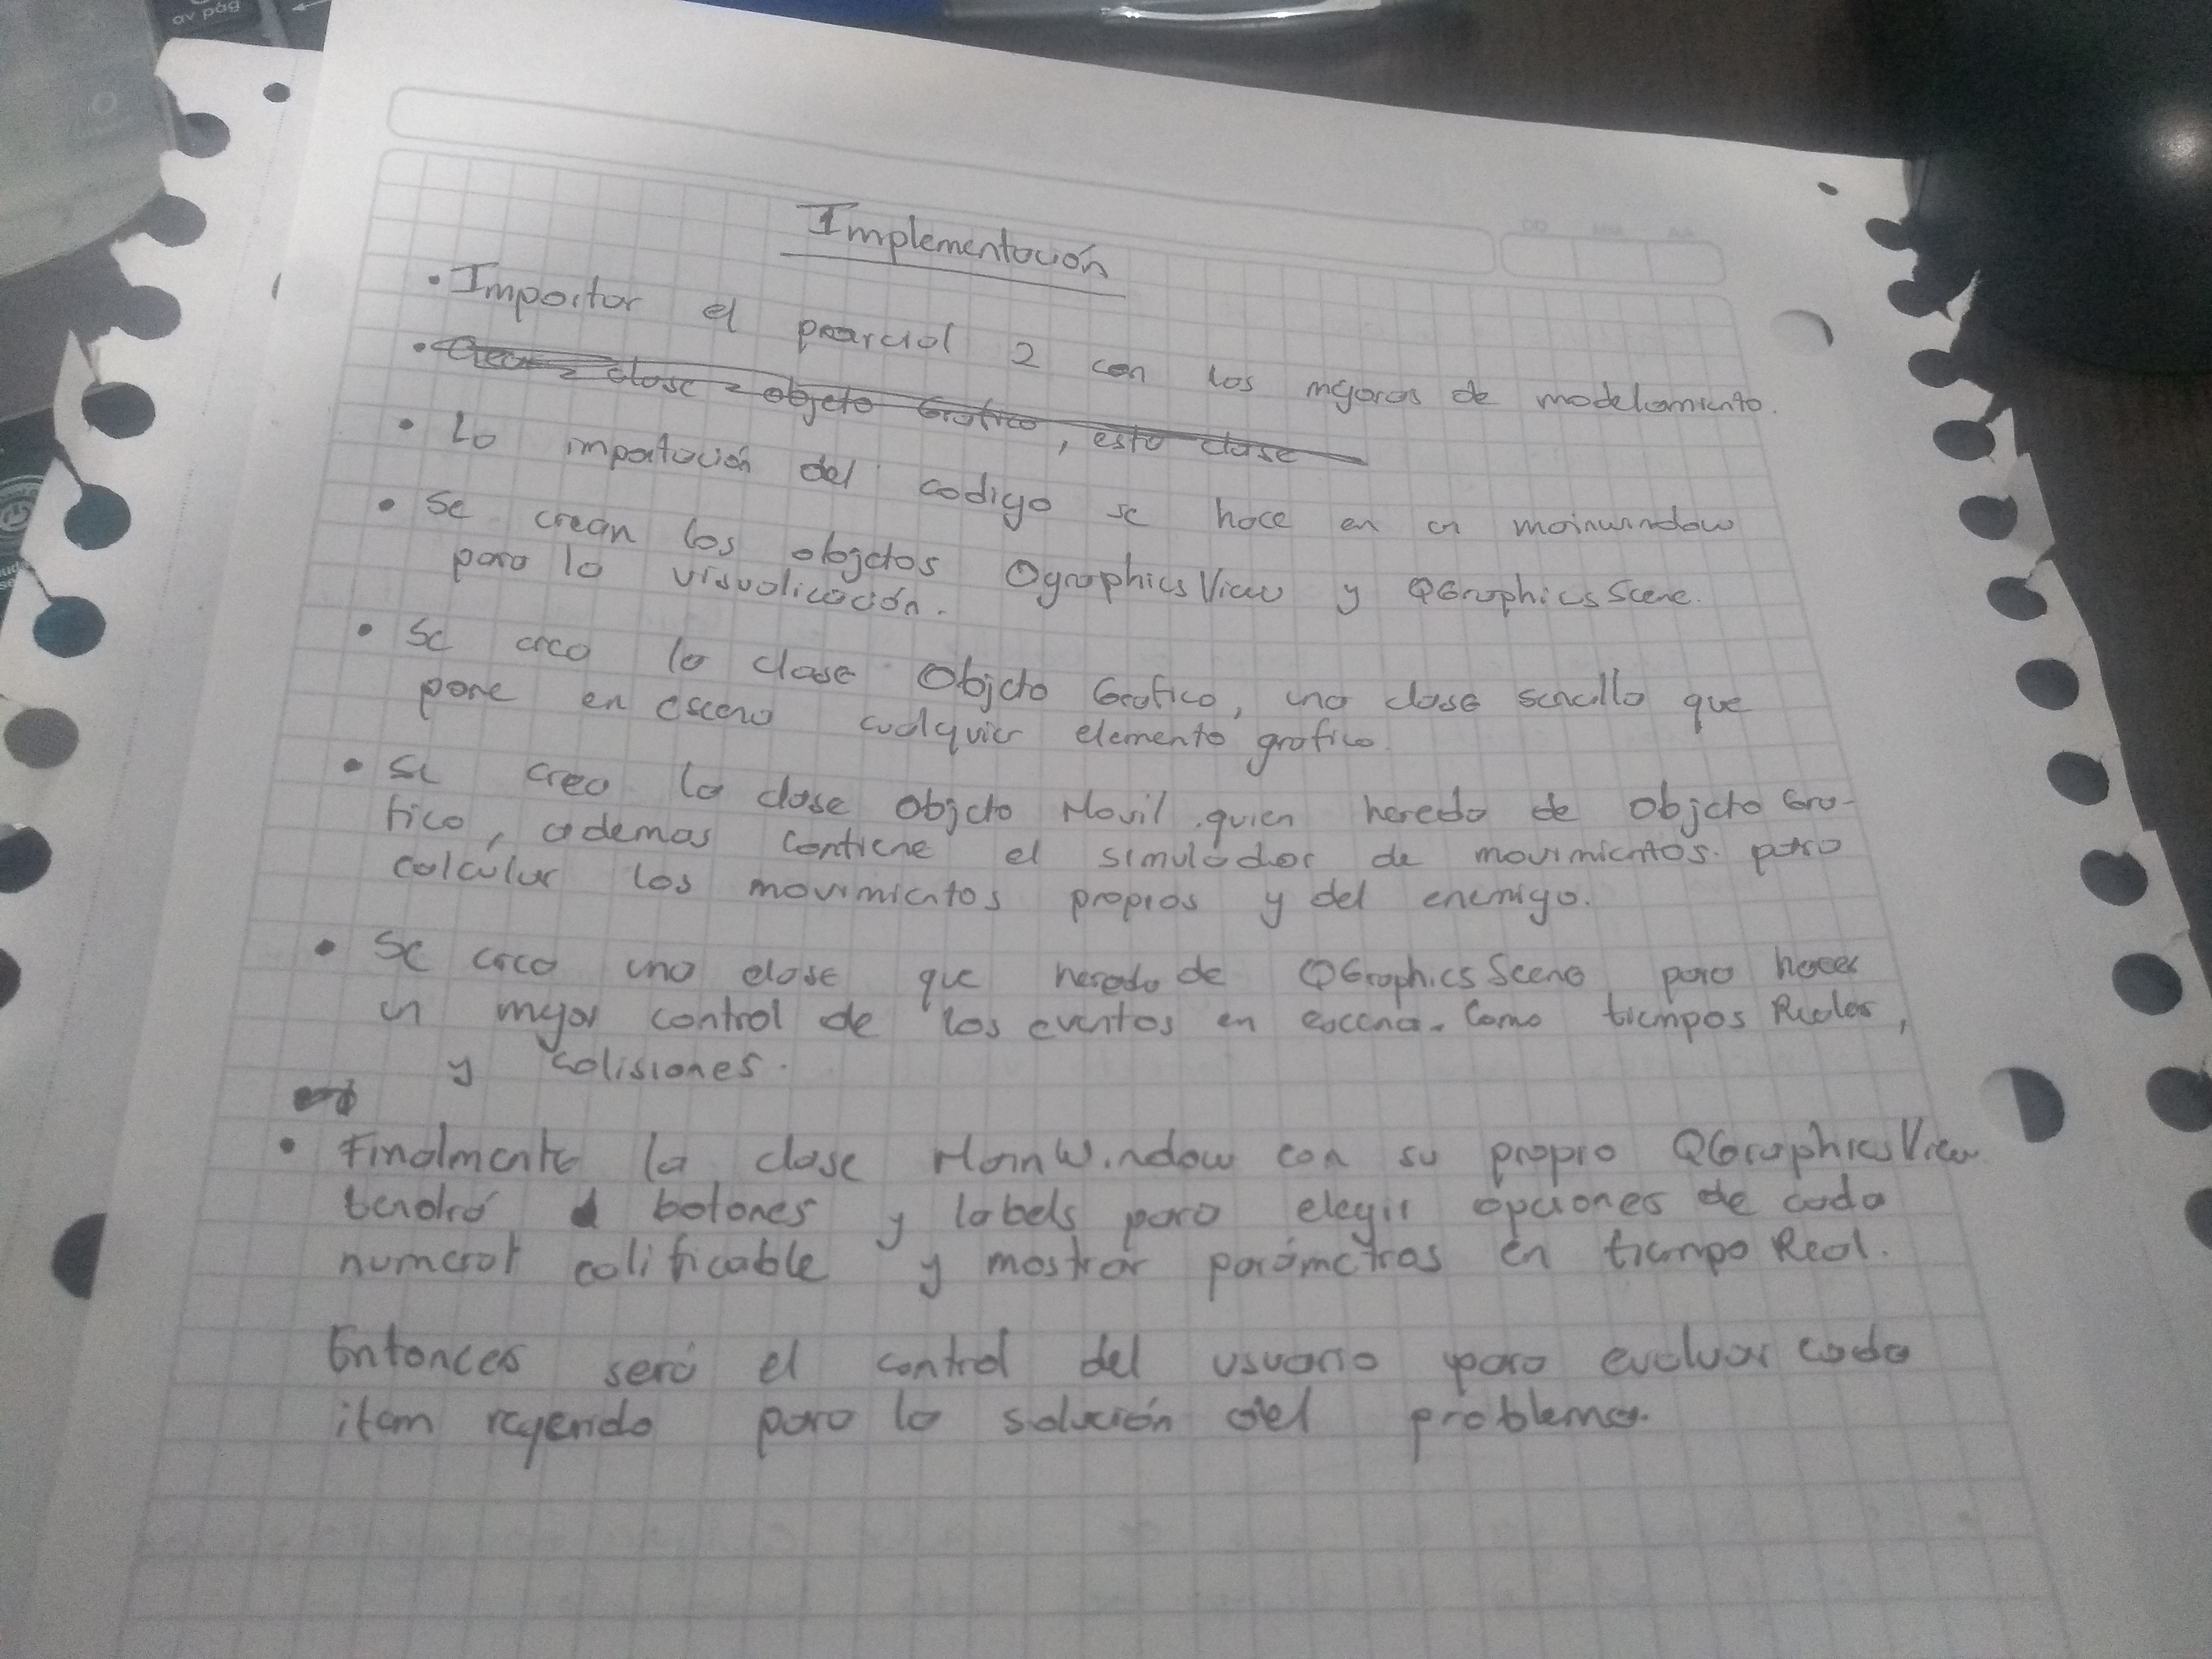 av pág
Implementación
• Importar el parcial 2 con las mejoras de modelamiento.
• Crear clase objeto Grafico, esta clase
• La importación del codigo se hace en un mainwindow
• Se crean los objetos QgraphicsView y QGraphicsScene.
para la visualicación.
• Se crea la clase Objeto Grafico, una clase sencilla que
pone en escena cualquier elemento grafico.
• Se crea la clase Objeto Movil quien hereda de Objeto Gra-
fico, ademas contiene el simulador de movimientos para
calcular los movimientos propios y del enemigo.
• Se crea una clase que hereda de QGraphicsScene para hacer
un mejor control de los eventos en escena. Como tiempos Reales,
y colisiones.
• Finalmente la clase MainWindow con su propio QGraphicsView
tendrá botones y labels para elegir opciones de cada
numeral calificable y mostrar parámetros en tiempo Real.
Entonces será el control del usuario para evaluar cada
item para la solución del problema.